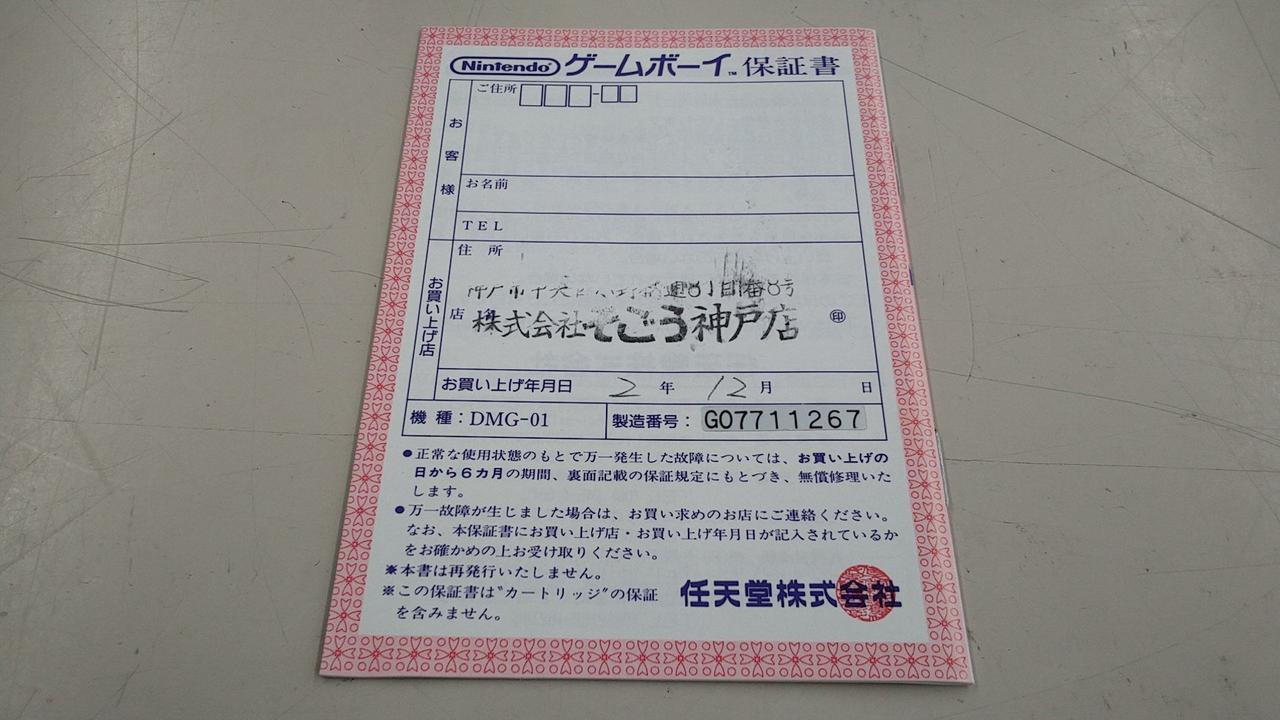 Nintendo ゲームボーイ™ 保証書
お客様
ご住所
お名前
TEL
お買い上げ店
住所
神戸市中央区 通8丁目1番8号
店
株式会社そごう神戸店 印
お買い上げ年月日 2年 12月 日
機種：DMG-01 製造番号：G07711267
●正常な使用状態のもとで万一発生した故障については、お買い上げの
日から6カ月の期間、裏面記載の保証規定にもとづき、無償修理いた
します。
●万一故障が生じました場合は、お買い求めのお店にご連絡ください。
なお、本保証書にお買い上げ店・お買い上げ年月日が記入されているか
をお確かめの上お受け取りください。
※本書は再発行いたしません。
※この保証書は"カートリッジ"の保証
を含みません。
任天堂株式会社